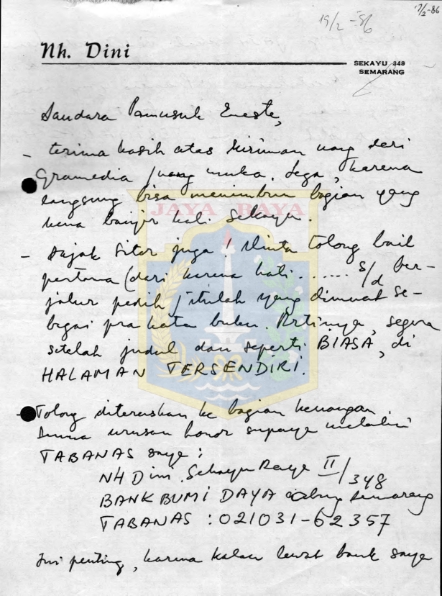 17/2-86
19/2-86
Nh. Dini
SEKAYU 348
SEMARANG
Saudara Pamusuk Eneste,
- terima kasih atas kiriman uang dari
Gramedia, uang muka. Lega, karena
langsung bisa menembus bagian yang
kena banjir kali Sekayu.
- Sajak Sitor juga! Minta tolong bait
pertama (dari karena hati ...... s/d ber-
jalur pedih) itulah yang dimuat se-
bagai pra kata buku. Artinya, segera
setelah judul dan seperti BIASA, di
HALAMAN TERSENDIRI.
JAYA RAYA
- Tolong diteruskan ke bagian keuangan.
Semua urusan honor supaya melalui
TABANAS saya:
NH Dini. Sekayu Raya II/348
BANK BUMI DAYA cabang Semarang
TABANAS : 021031-62357
Ini penting, karena kalau lewat bank saya